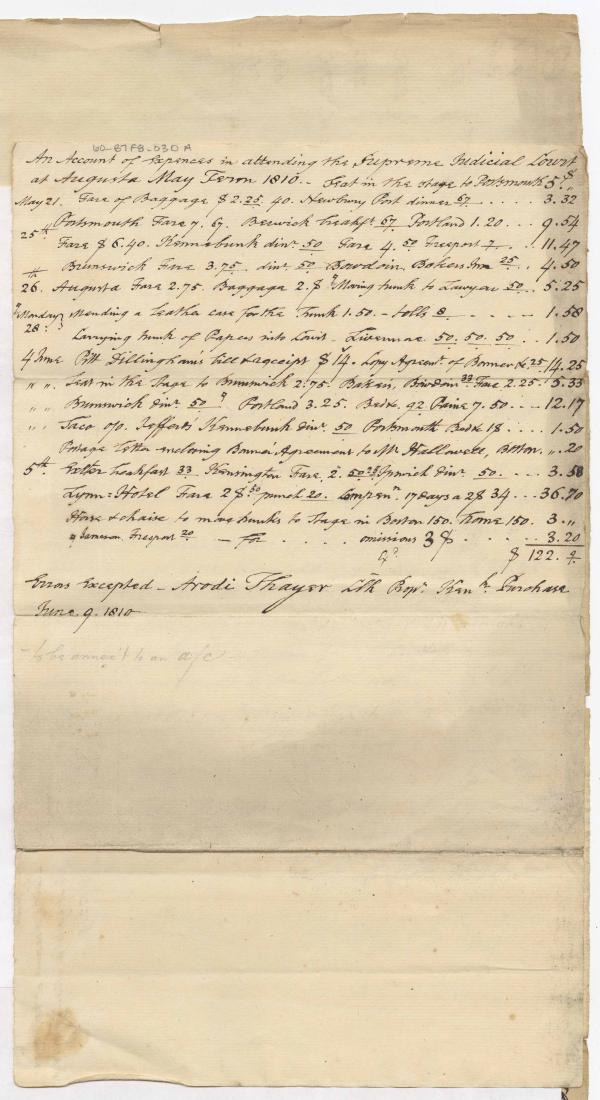 60-87F8-030A
An Account of Expences in attending the Supreme Judicial Court
at Augusta May Term 1810. - Seat in the Stage to Portsmouth 5.$ „
May 21. Fare of Baggage $ 2.25. 40. Newbury Port dinner 67 .... 3.32
25th Portsmouth Fare 7. 67. Berwick breakft. 67. Portland 1.20 ... 9.54
Fare $ 6.40. Kennebunk dinr. 50 Fare 4.50 Freeport ... 11.47
Brunswick Fare 3.75. dinr. 50 Bowdoin Bakers Inn 25 .. 4.50
26. Augusta Fare 2.75. Baggage 2.$ Moving trunk to Lawyers 50 . 5.25
Monday 28. Mending a Leather case for the Trunk 1.50. - Tolls 8 ..... 1.58
Carrying trunk of Papers into Court. Livermore 50. 50. 50 .. 1.50
4 June Pitt Dillingham's bill & receipt $ 14. Copy Agreemt. of Bonner &c 25 14.25
„ „ . Seat in the Stage to Brunswick 2.75. Bakers, Bowdoin 33 Fare 2.25 . 5.33
„ „ Brunswick dinr. 50 Portland 3.25. Bed &c 92 Paine 7.50 ... 12.17
„ „ Saco Jefferds Kennebunk dinr. 50 Portsmouth Bed &c 18 .... 1.50
Postage Letter enclosing Bonner Agreement to Mr. Hallowell, Boston. „ .20
5th. Exeter breakfast 33 Kensington Fare 2.50 25 Ipswich dinr. 50 .... 3.58
Lynn: Hotel Fare 2 $ .50 punch 20. Compenn. 17 days a 2$ 34 ... 36.70
Horse & chaise to move trunks to Stage in Boston 150. home 150. 3. „
„ Jameson Freeport 20 - for .... omissions 3 $ ..... 3.20
$ 122. 9
Errors Excepted - Arodi Thayer Clk Propr. Kenbk. Purchase
June 9. 1810
- to be annex't to an a/c -